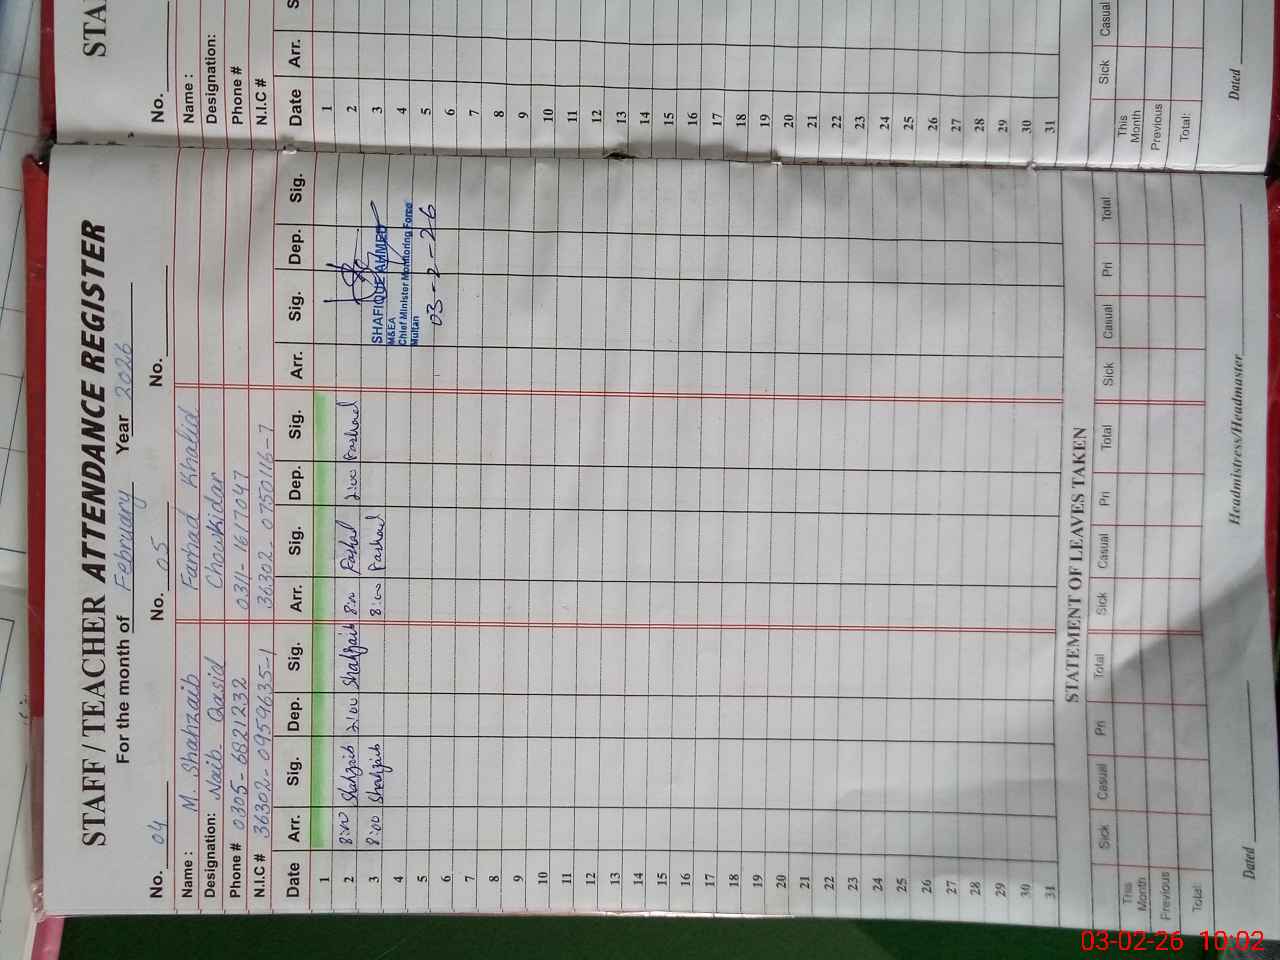 STAFF / TEACHER ATTENDANCE REGISTER
For the month of February Year 2026
No. 04 No. 05 No.
Name : M. Shahzaib Farhad Khalid
Designation: Naib Qasid Chowkidar
Phone # 0305-6821232 0311-1617047
N.I.C # 36302-0959635-1 36302-0750116-7
Date Arr. Sig. Dep. Sig. Arr. Sig. Dep. Sig. Arr. Sig. Dep. Sig.
1
2 8:00 Shahzaib 2:00 Shahzaib 8:00 Farhad 2:00 Farhad
3 8:00 Shahzaib 8:00 Farhad
SHAFIQUE AHMED
M&EA
Chief Minister Monitoring Force
Multan
03-2-26
4
5
6
7
8
9
10
11
12
13
14
15
16
17
18
19
20
21
22
23
24
25
26
27
28
29
30
31
STATEMENT OF LEAVES TAKEN
Sick Casual Pri Total Sick Casual Pri Total Sick Casual Pri Total
This Month
Previous
Total:
Dated Headmistress/Headmaster
STA
No.
Name :
Designation:
Phone #
N.I.C #
Date Arr. S
1
2
3
4
5
6
7
8
9
10
11
12
13
14
15
16
17
18
19
20
21
22
23
24
25
26
27
28
29
30
31
Sick Casual
This Month
Previous
Total:
Dated
03-02-26 10:02